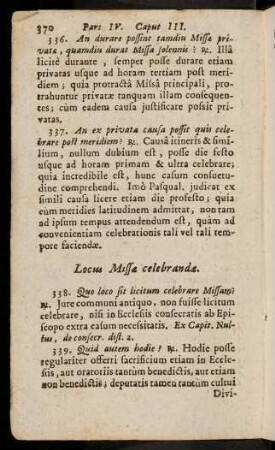 370 Pars IV. Caput III.
336. An durare possint tamdiu Missæ pri-
vatæ, quamdiu durat Missa solennis? ℞. Illâ
licitè durante, semper posse durare etiam
privatas usque ad horam tertiam post meri-
diem; quia protractâ Missâ principali, pro-
trahuntur privatæ tanquam illam consequen-
tes; cùm eadem causa justificare possit pri-
vatas.
337. An ex privata causa possit quis cele-
brare post meridiem? ℞. Causâ itineris & simi-
lium, nullum dubium est, posse die festo
usque ad horam primam & ultra celebrare;
quia incredibile est, hunc casum consuetu-
dine comprehendi. Imò Pasqual. judicat ex
simili causa licere etiam die profesto; quia
cùm meridies latitudinem admittat, non tam
ad ipsum tempus attendendum est, quàm ad
convenientiam celebrationis tali vel tali tem-
pore faciendæ.
Locus Missæ celebrandæ.
338. Quo loco sit licitum celebrare Missam?
℞. Jure communi antiquo, non fuisse licitum
celebrare, nisi in Ecclesiis consecratis ab Epi-
scopo extra casum necessitatis. Ex Capit. Nul-
lus, de consecr. dist. 2.
339. Quid autem hodie? ℞. Hodie posse
regulariter offerri sacrificium etiam in Eccle-
siis, aut oratoriis tantùm benedictis, aut etiam
non benedictis; deputatis tamen tantùm cultui
Divi-